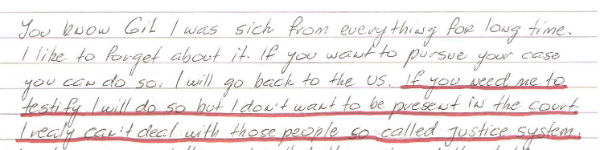 You know Gil I was sick from everything for long time.
I like to forget about it. If you want to pursue your case
you can do so. I will go back to the US. If you need me to
testify I will do so but I don't want to be present in the court
I realy can't deal with those people so called justice system.